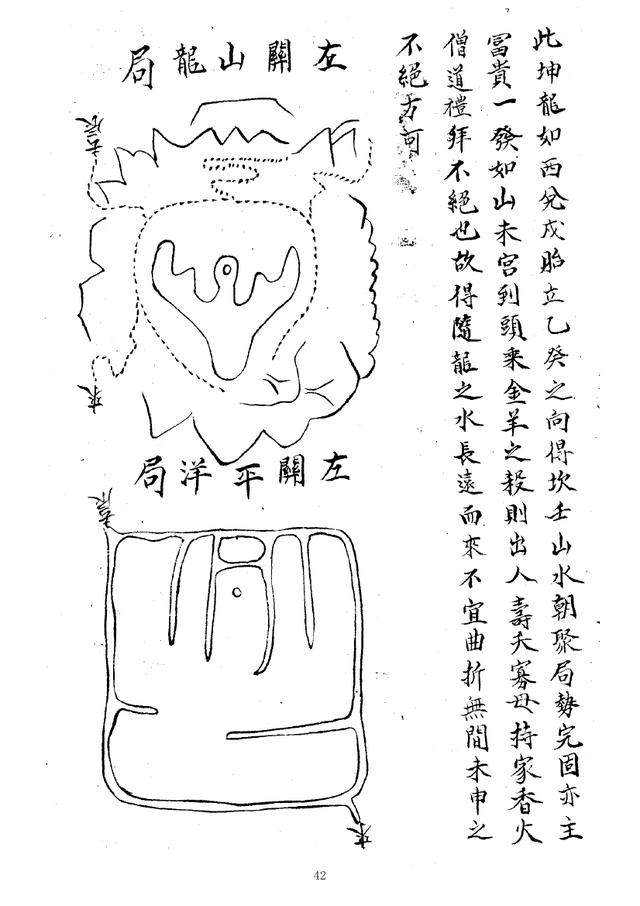 此坤龍如西兌戌胎立乙癸之向得坎壬山水朝聚局勢完固亦主
富貴一發如山未宮到頭乘金羊之殺則出人壽夭寡母持家香火
僧道禮拜不絕也故得隨龍之水長遠而來不宜曲折無間未申之
不絕方可
左關山龍局
來
左關平洋局
來
42